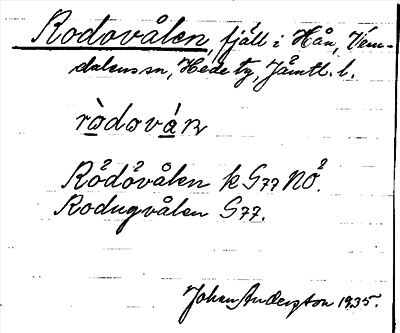 Rodovålen, fjäll i Hån, Vem-
dalens sn, Hede tg, Jämtl. l.
ròdová̱n
Rödövålen k G77 NÖ.
Rodugvålen G77.
Johan Anderzton 1935.